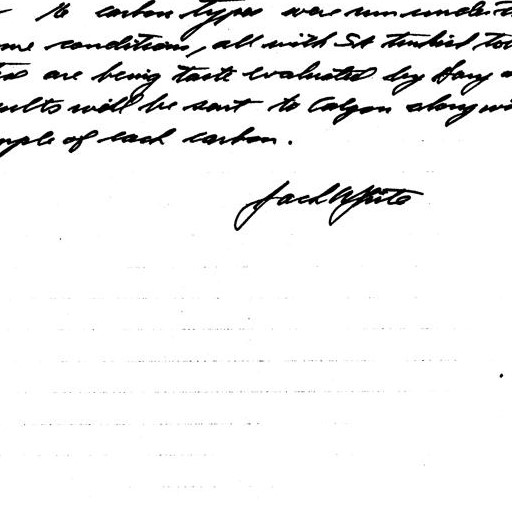 16 carbon types were run under
conditions, all with
are being taste evaluated by Gary
will be sent to Calgon along
of each carbon.
Jack White